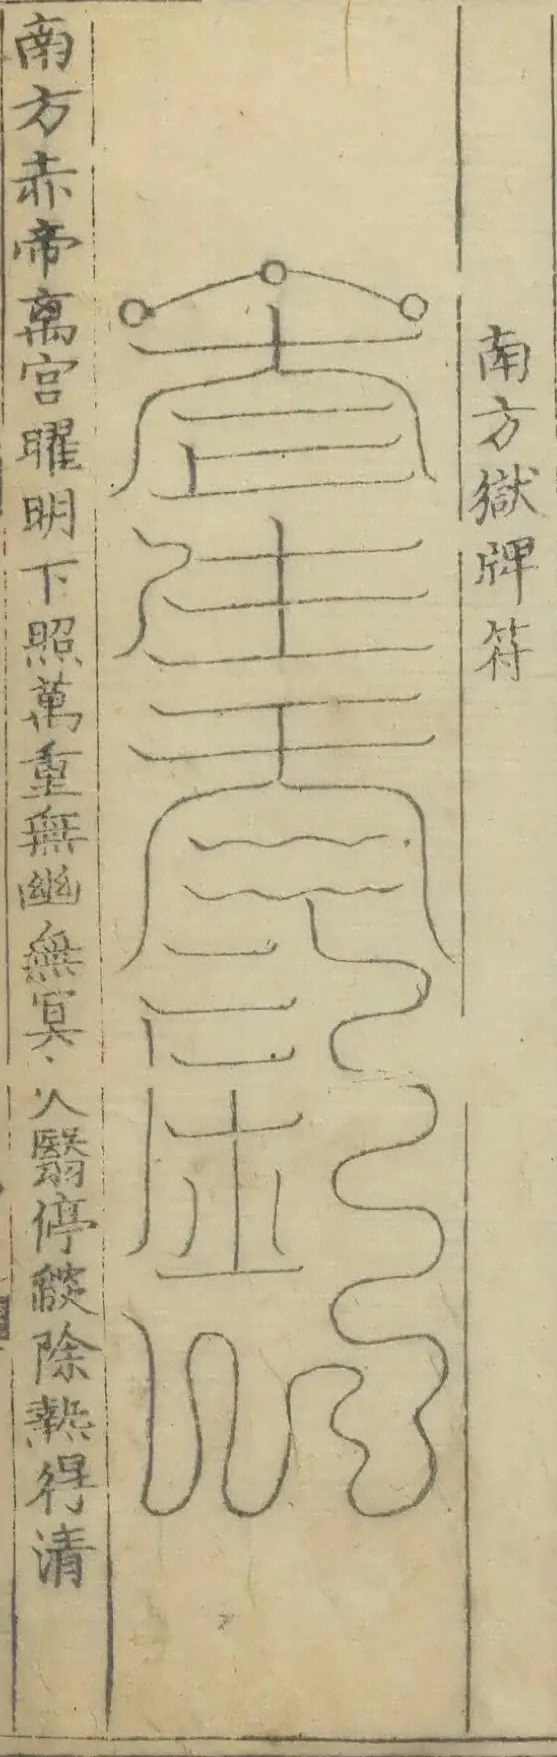 南方獄牌符
南方赤帝离宫曜明下照萬重無幽無冥火醫停燄除熱得清